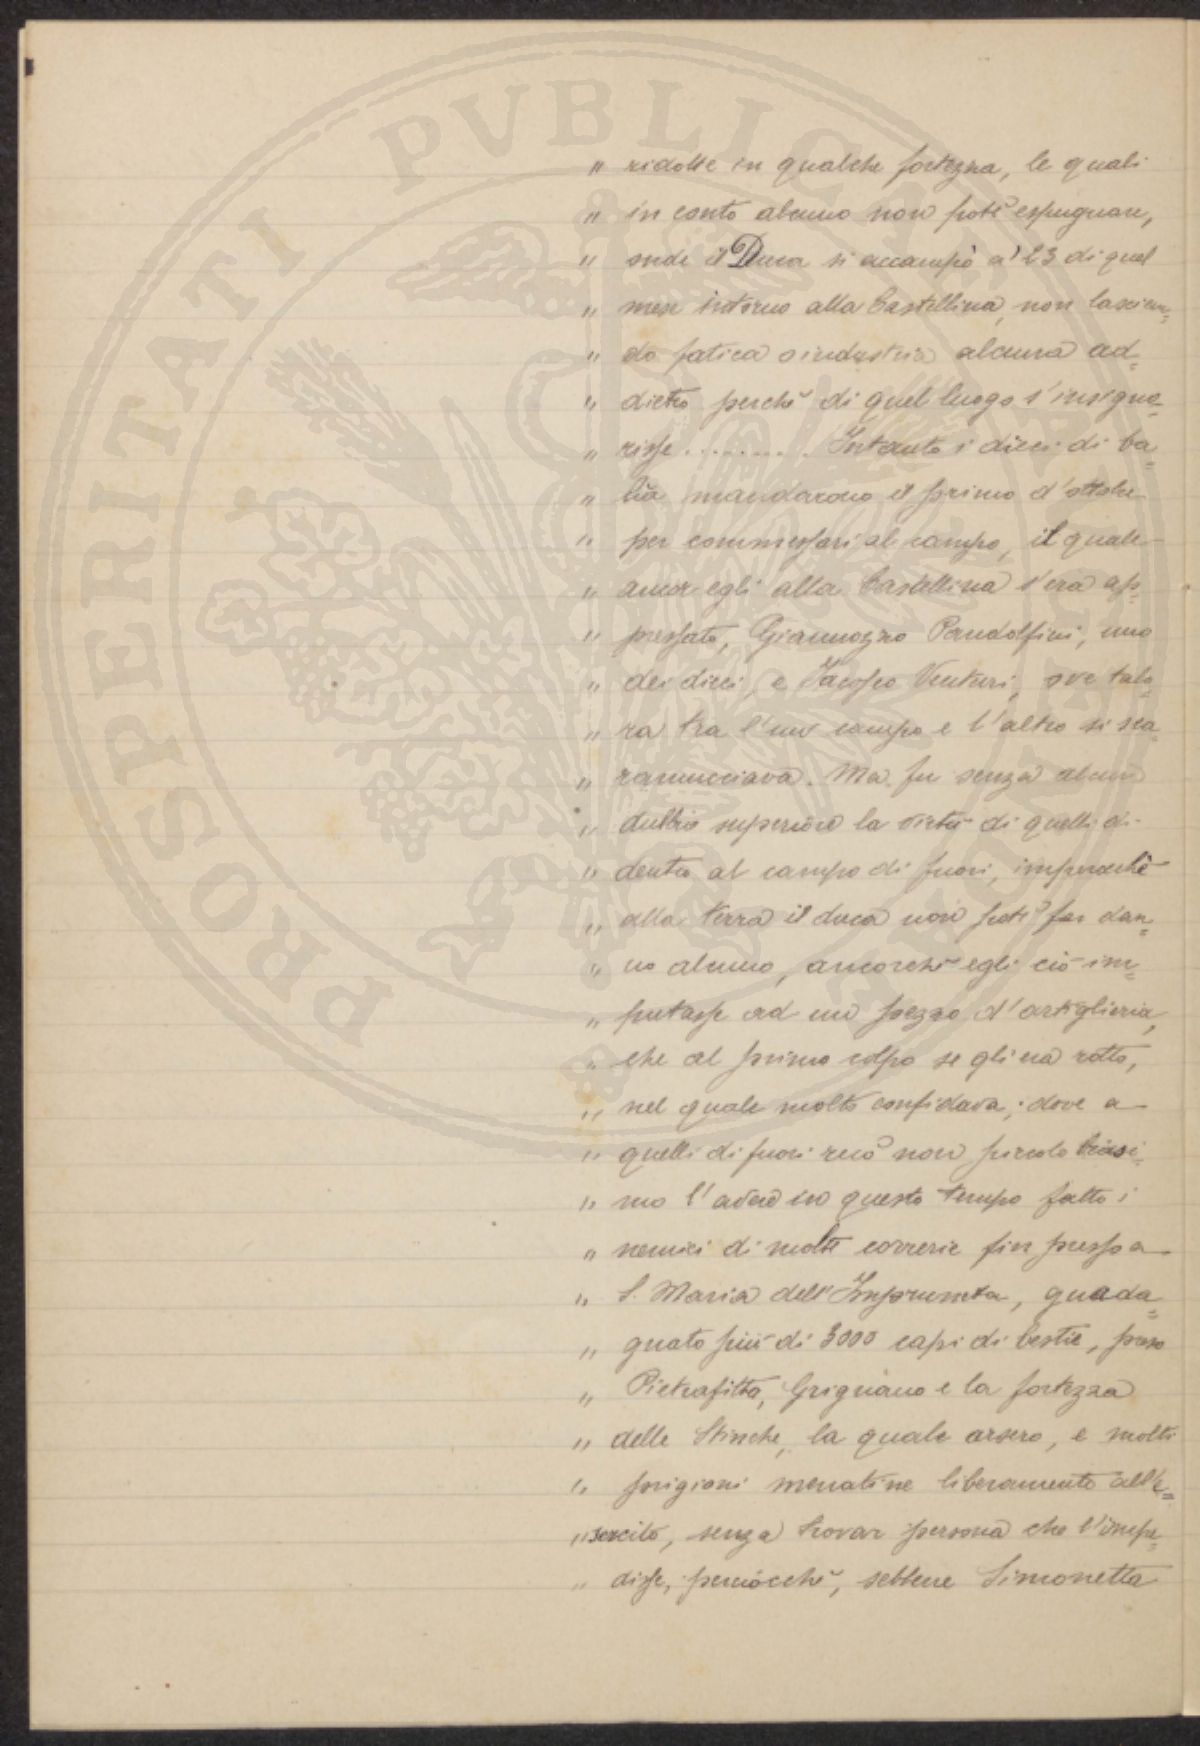 PROSPERITATI PVBLICAE AVGENDAE
„ ridotte in qualche fortezza, le quali
„ in conto alcuno non potè espugnare,
„ onde il Duca si accampò a' 23 di quel
„ mese intorno alla Castellina, non lascian=
„ do fatica o industria alcuna ad=
„ dietro perchè di quel luogo s'insigno=
„ risse ......... Intanto i dieci di ba=
„ lìa mandarono il primo d'ottobre
„ per commessari al campo, il quale
„ ancor egli alla Castellina s'era ap=
„ pressato, Giannozzo Pandolfini, uno
„ dei dieci, e Jacopo Venturi, ove talo=
„ ra tra l'uno campo e l'altro si sca=
„ ramucciava. Ma fu senza alcun
„ dubbio superiore la virtù di quelli di
„ dentro al campo di fuori, imperochè
„ alla terra il duca non potè far dan=
„ no alcuno, ancorchè egli ciò im=
„ putasse ad un pezzo d'artiglieria,
„ che al primo colpo se gli era rotto,
„ nel quale molto confidava; dove a
„ quelli di fuori recò non piccolo biasi=
„ mo l'avere in questo tempo fatto i
„ nemici di molte correrie fin presso a
„ S. Maria dell'Impruneta, guada=
„ gnato più di 3000 capi di bestie, preso
„ Pietrafitta, Grignano e la fortezza
„ delle Stinche, la quale arsero, e molti
„ prigioni menatine liberamente all'e=
„ sercito, senza trovar persona che l'impe=
„ disse, perciocchè, sebbene Simonetta